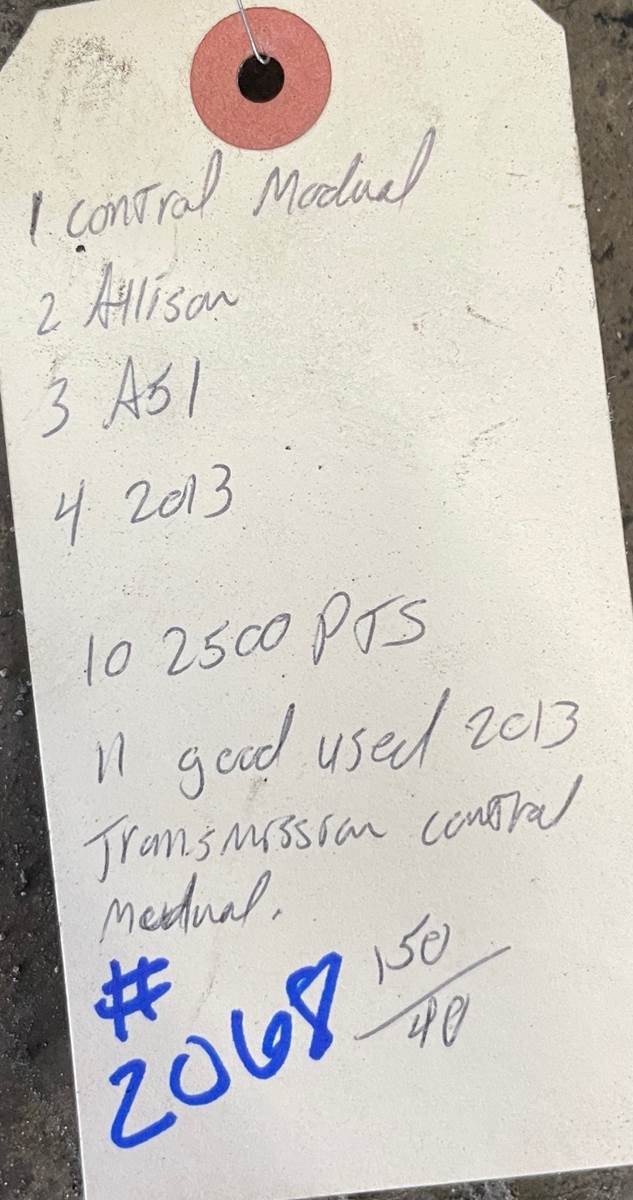 1 control Modual
2 Allison
3 A51
4 2013
10 2500 PTS
11 good used 2013
Transmission control
Modual.
#
2068
150/40